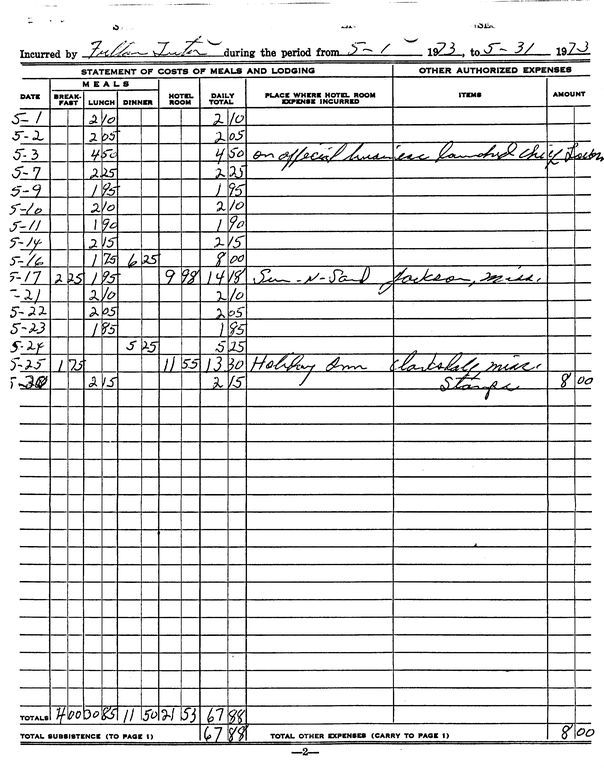 Incurred by Fulton Tutor during the period from 5-1 1973, to 5-31 1973
STATEMENT OF COSTS OF MEALS AND LODGING OTHER AUTHORIZED EXPENSES
DATE MEALS HOTEL ROOM DAILY TOTAL PLACE WHERE HOTEL ROOM EXPENSE INCURRED ITEMS AMOUNT
BREAK-FAST LUNCH DINNER
5-1 2 10 2 10
5-2 2 05 2 05
5-3 4 50 4 50 on official business lunched Chif Tutor
5-7 2 25 2 25
5-9 1 95 1 95
5-10 2 10 2 10
5-11 1 90 1 90
5-14 2 15 2 15
5-16 1 75 6 25 8 00
5-17 2 25 1 95 9 98 14 18 Sun-N-Sand Jackson, Miss.
-21 2 10 2 10
5-22 2 05 2 05
5-23 1 85 1 85
5-24 5 25 5 25
5-25 1 75 11 55 13 30 Holiday Inn Clarksdale, miss.
2 15 2 15 Stamps 8 00
TOTALS 4 00 30 85 11 50 21 53 67 88
TOTAL SUBSISTENCE (TO PAGE 1) 67 88 TOTAL OTHER EXPENSES (CARRY TO PAGE 1) 8 00
—2—